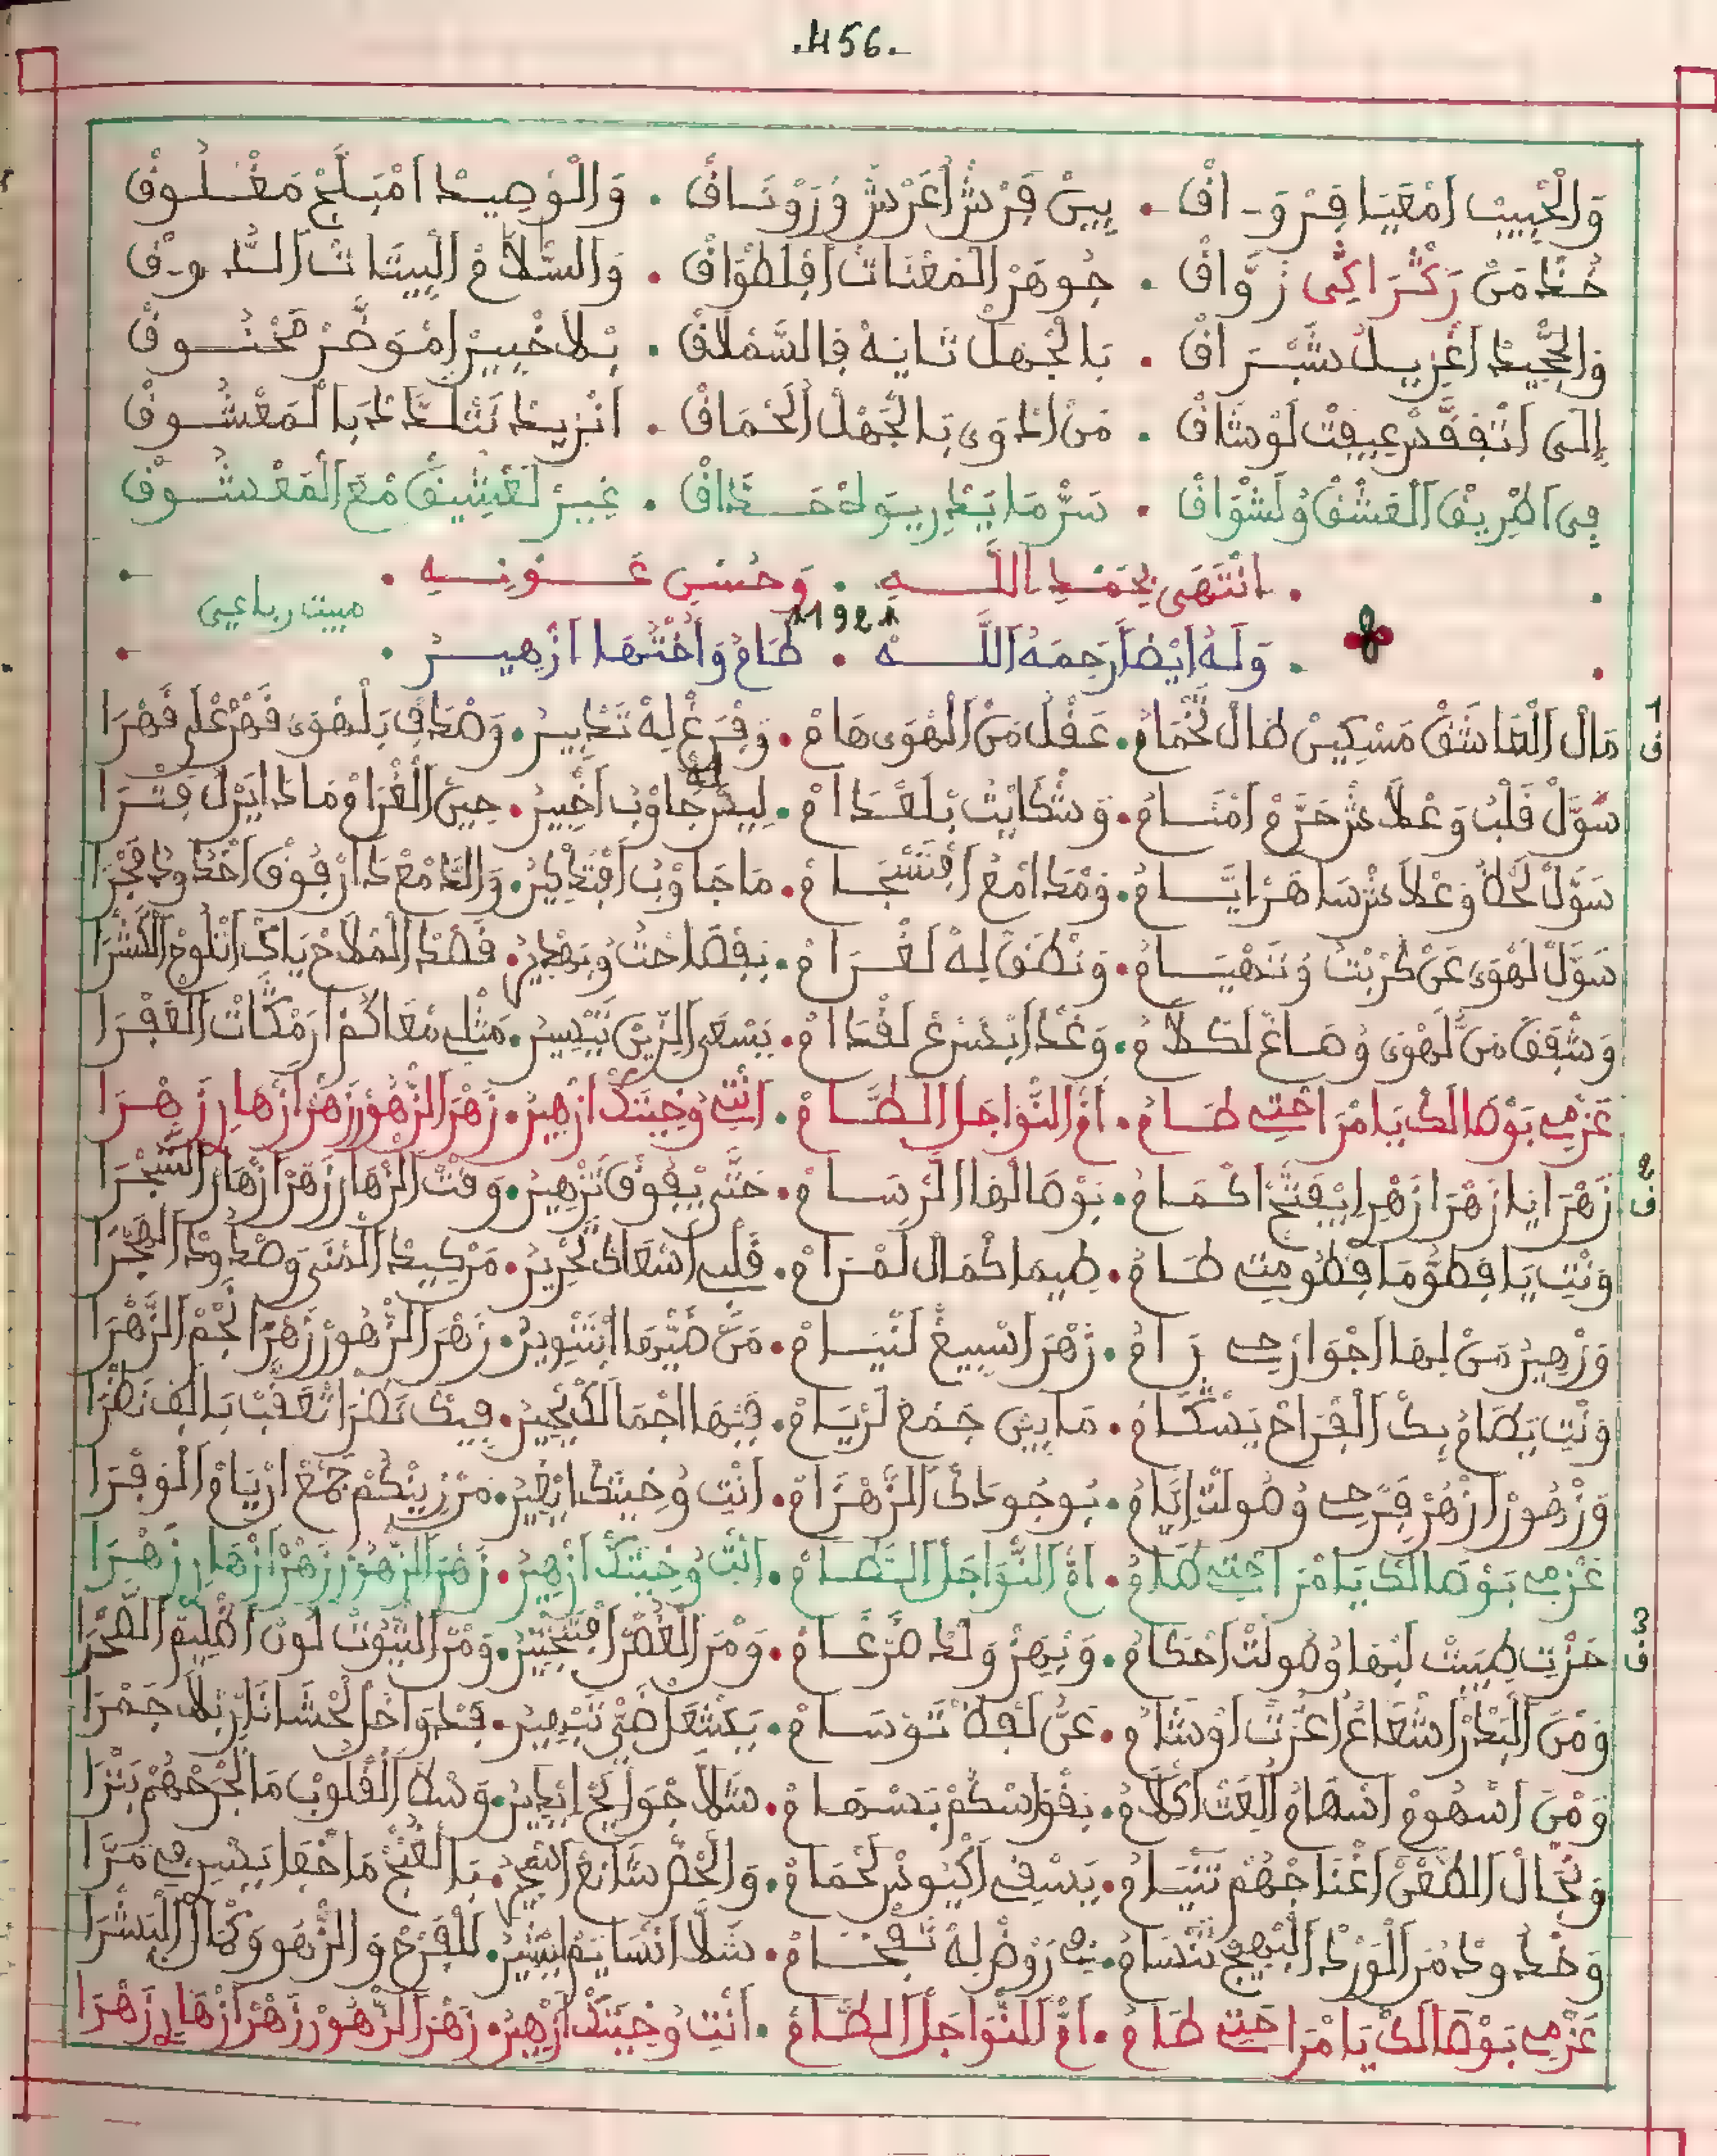 .456.
وَالْحْبِيبْ امْعَيَا فِرْوَاقْ . بِينْ فَرْشْ اُعَرْشْ وُرَوْنَاقْ . وَالْوْصِيدْ امْبَلَّجْ مَغْلُوقْ
خُذْ مَنْ رَكْتْرَاكِي زَوَّاقْ . جُوهَرْ الْمَعْنَاتْ افْلَطْوَاقْ . وَالسّْلَامْ الْبِيتَاتْ الذُّوقْ
وَالْجّْحِيدْ اغْزِيلْ شَبْرَاقْ . بَالْجْهَلْ تَايَهْ فَالسَّمْلَاقْ . بْلَا خْبِيرْ امْوَضَّرْ مَحْنُوقْ
إِلَى اتْفَقَّدْ عِيفْتْ لَوْشَاقْ . مَنْ ادْوَى بَالْجَهْلْ الْحْمَاقْ . انْزِيدْ نَتْلَدَّدْ بَالْمَعْشُوقْ
فِي اطْرِيقْ الْعَشْقْ وُلَشْوَاقْ . سَرّْ مَا يَدْرِيوَهْ حَذَّاقْ . غِيرْ لَعْشِيقْ مْعَ الْمَعْشُوقْ
انْتَهَى بِحَمْدِ اللَّهِ . وَحُسْنِ عَوْنِهِ .
مبيت رباعي
1921
وَلَهُ ايْضاً رَحِمَهُ اللَّه . طَامُ وَاخْتْهَا ازْهِيرْ .
1
ف
مَالْ الْعَاشَقْ مَسْكِينْ طَالْ تُخْمَامُ . عَقْلُ مَنْ الْهْوَى هَامْ . وَفْرَغْ لِهْ تَدْبِيرُ . وَصْدَفْ بَلْهْوَى قَهْرْ عْلَى قَهْرَا
سَوَّلْ قَلْبُ وَعْلَاشْ حَرَّمْ امْنَامُ . وَشْكَايْتُ بْلَعْدَامْ . لِيسْ لَهْ جَاوَبْ اخْبِيرُ . حِينْ الْغْرَامْ مَادَا يَزّلْ فَتْرَا
سَوَّلْ لَحْظُ وَعْلَاشْ سَاهَرْ ايَّامُ . وَمْدَامْعُ افْتَسْجَامْ . مَا جَاوَبْ افْتَدْكِيرُ . وَالدَّمْعْ دَارْ فُوقْ اخْدُودُ فَجْرَا
سَوَّلْ لَهْوَى عَنْ كُرْبْتُ وَتَهْيَامُ . وَنْطَقْ لِهْ لَغْرَامْ . بَفْصَاحْتُ وُتَهْدِيرُ . قَصْدْ الْمْلَاحْ يَاكْ اتْلُوحْ الْكَشْرَا
وَشْفَقْ مَنْ لَهْوَى وُصَاغْ لَكْلَامُ . وَغْدَا يْسَرَّعْ لَقْدَامْ . يَسْعَى الزِّينْ بَتْيْسِيرْ . مَثْلِي مْعَاكُمْ ارَمْكَاتْ الْعَفْرَا
عَزْمِي بَوْصَالَكْ يَا مْرَاحْتِي طَامُ . امْ النّْوَاجَلْ الطَّامْ . انْتِ وُخِيتَكْ ازْهِيرُ . زَهْرَ الزّْهُورْ زَهْرْ ازْهَارِي زَهْرَا
2
ف
زَهْرَا يَا زَهْرَا زَهْرِي يْفَتّْحْ اكْمَامُ . بَوْصَالْهَا الرّْسَامْ . حَتَّى يْفُوقْ تَزْهِيرُ . وَقْتْ الزّْهَارْ زَهْرْ ازْهَارْ السّْجْرَا
وَنْتِ يَا فَطُّومَا فَطُّومْتِي طَامُ . طِيمَا كْمَالْ لَمْرَامْ . قَلْبِي اسْعَاكْ تَحْرِيرُ . مَرْكِيدْ الْمْنَى وَصْدُودْ الْهَجْرَا
وَزْهِيرْ مَنْ لِهَا اجْوَارْحِي رَامُ . زَهْرَا سْبِيغْ لَنْيَامْ . مَنْ ضَيّْهَا ابْتَنْوِيرُ . زَهْرَ الزّْهُورْ زَهْرَا نَجْمْ الزُّهْرَا
وَنْتِ يَطَامُ بِكْ الْفْرَاحْ يَسْكَامُ . مَابِينْ جَمْعْ لَرْيَامْ . فِيهَا اجْمَالَكْ يْحِيرُ . فِيكْ نَظْرَا تْعَقَّبْ بَالْفْ نَظْرَا
وَزْهُورْ ازْهَرْ فَرْحِي وُصُولْتْ ايَّامُ . بُوجُودَكْ الزَّهْزَامْ . انْتِ وُخِيتَكْ ابْغِيرُ . مَنْ زِينْكُمْ جْمَعْ ارْيَامْ الْوَفْرَا
عَزْمِي بَوْصَالَكْ يَا مْرَاحْتِي طَامُ . امْ النّْوَاجَلْ الطَّامْ . انْتِ وُخِيتَكْ ازْهِيرُ . زَهْرَ الزّْهُورْ زَهْرْ ازْهَارِي زَهْرَا
3
ف
حَزْتِ طِيبْتْ لَبْهَا وُصُولْتْ احْكَامُ . وَبْهَزّْ وَلْدْ ضَرْغَامْ . وَمْنَ الْغْصَنْ افْتَخْيِيرُ . وَمْنَ التّْيُوتْ لُونْ اظْلِيمْ الصَّحْرَا
وَمْنَ الْبْدَرْ اشْعَاعْ اغُرَّتْ اوْشَامُ . عَنْ لَحْظْ تَوْسَامْ . يَشْعَلْ ضَيّْ تَبْدِيرُ . فَدْوَاخَلْ لَحْشَا نَارْ بْلَا جَمْرَا
وَمْنَ اسْهُومْ اسْهَامْ الْعَتْ اكْلَامُ . بَقْوَاسْكُمْ بَسْهَامْ . شَلَّا جْوَارَحْ ايْدِيرُ . وَسْطْ الْقْلُوبْ مَا لَجْرَحْهُمْ بَتْرَا
وَنْجَالْ الطَّعْنْ اغْنَاجْهُمْ تَتْيَامُ . يَسْقِي اكْيُوسْ لَحْمَامْ . وَالْحْضْ شَانَعْ اشْهِيرُ . بَالْغُنْجْ مَا خْفَا يَسْرِي مَرَّا
وَخْدُودْ مَرْ الْوَرْدْ الْبْهِيجْ تَنْسَامُ . فِي رَوْضْ لِهْ تَفْخَامْ . شَلَّا انْسَايَمْ يْبَشّْرُ . لَلْفَرْحْ وَالزّْهَو وَكْمَالْ الْبَشْرَا
عَزْمِي بَوْصَالَكْ يَا مْرَاحْتِي طَامُ . امْ النّْوَاجَلْ الطَّامْ . انْتِ وُخِيتَكْ ازْهِيرُ . زَهْرَ الزّْهُورْ زَهْرْ ازْهَارِي زَهْرَا